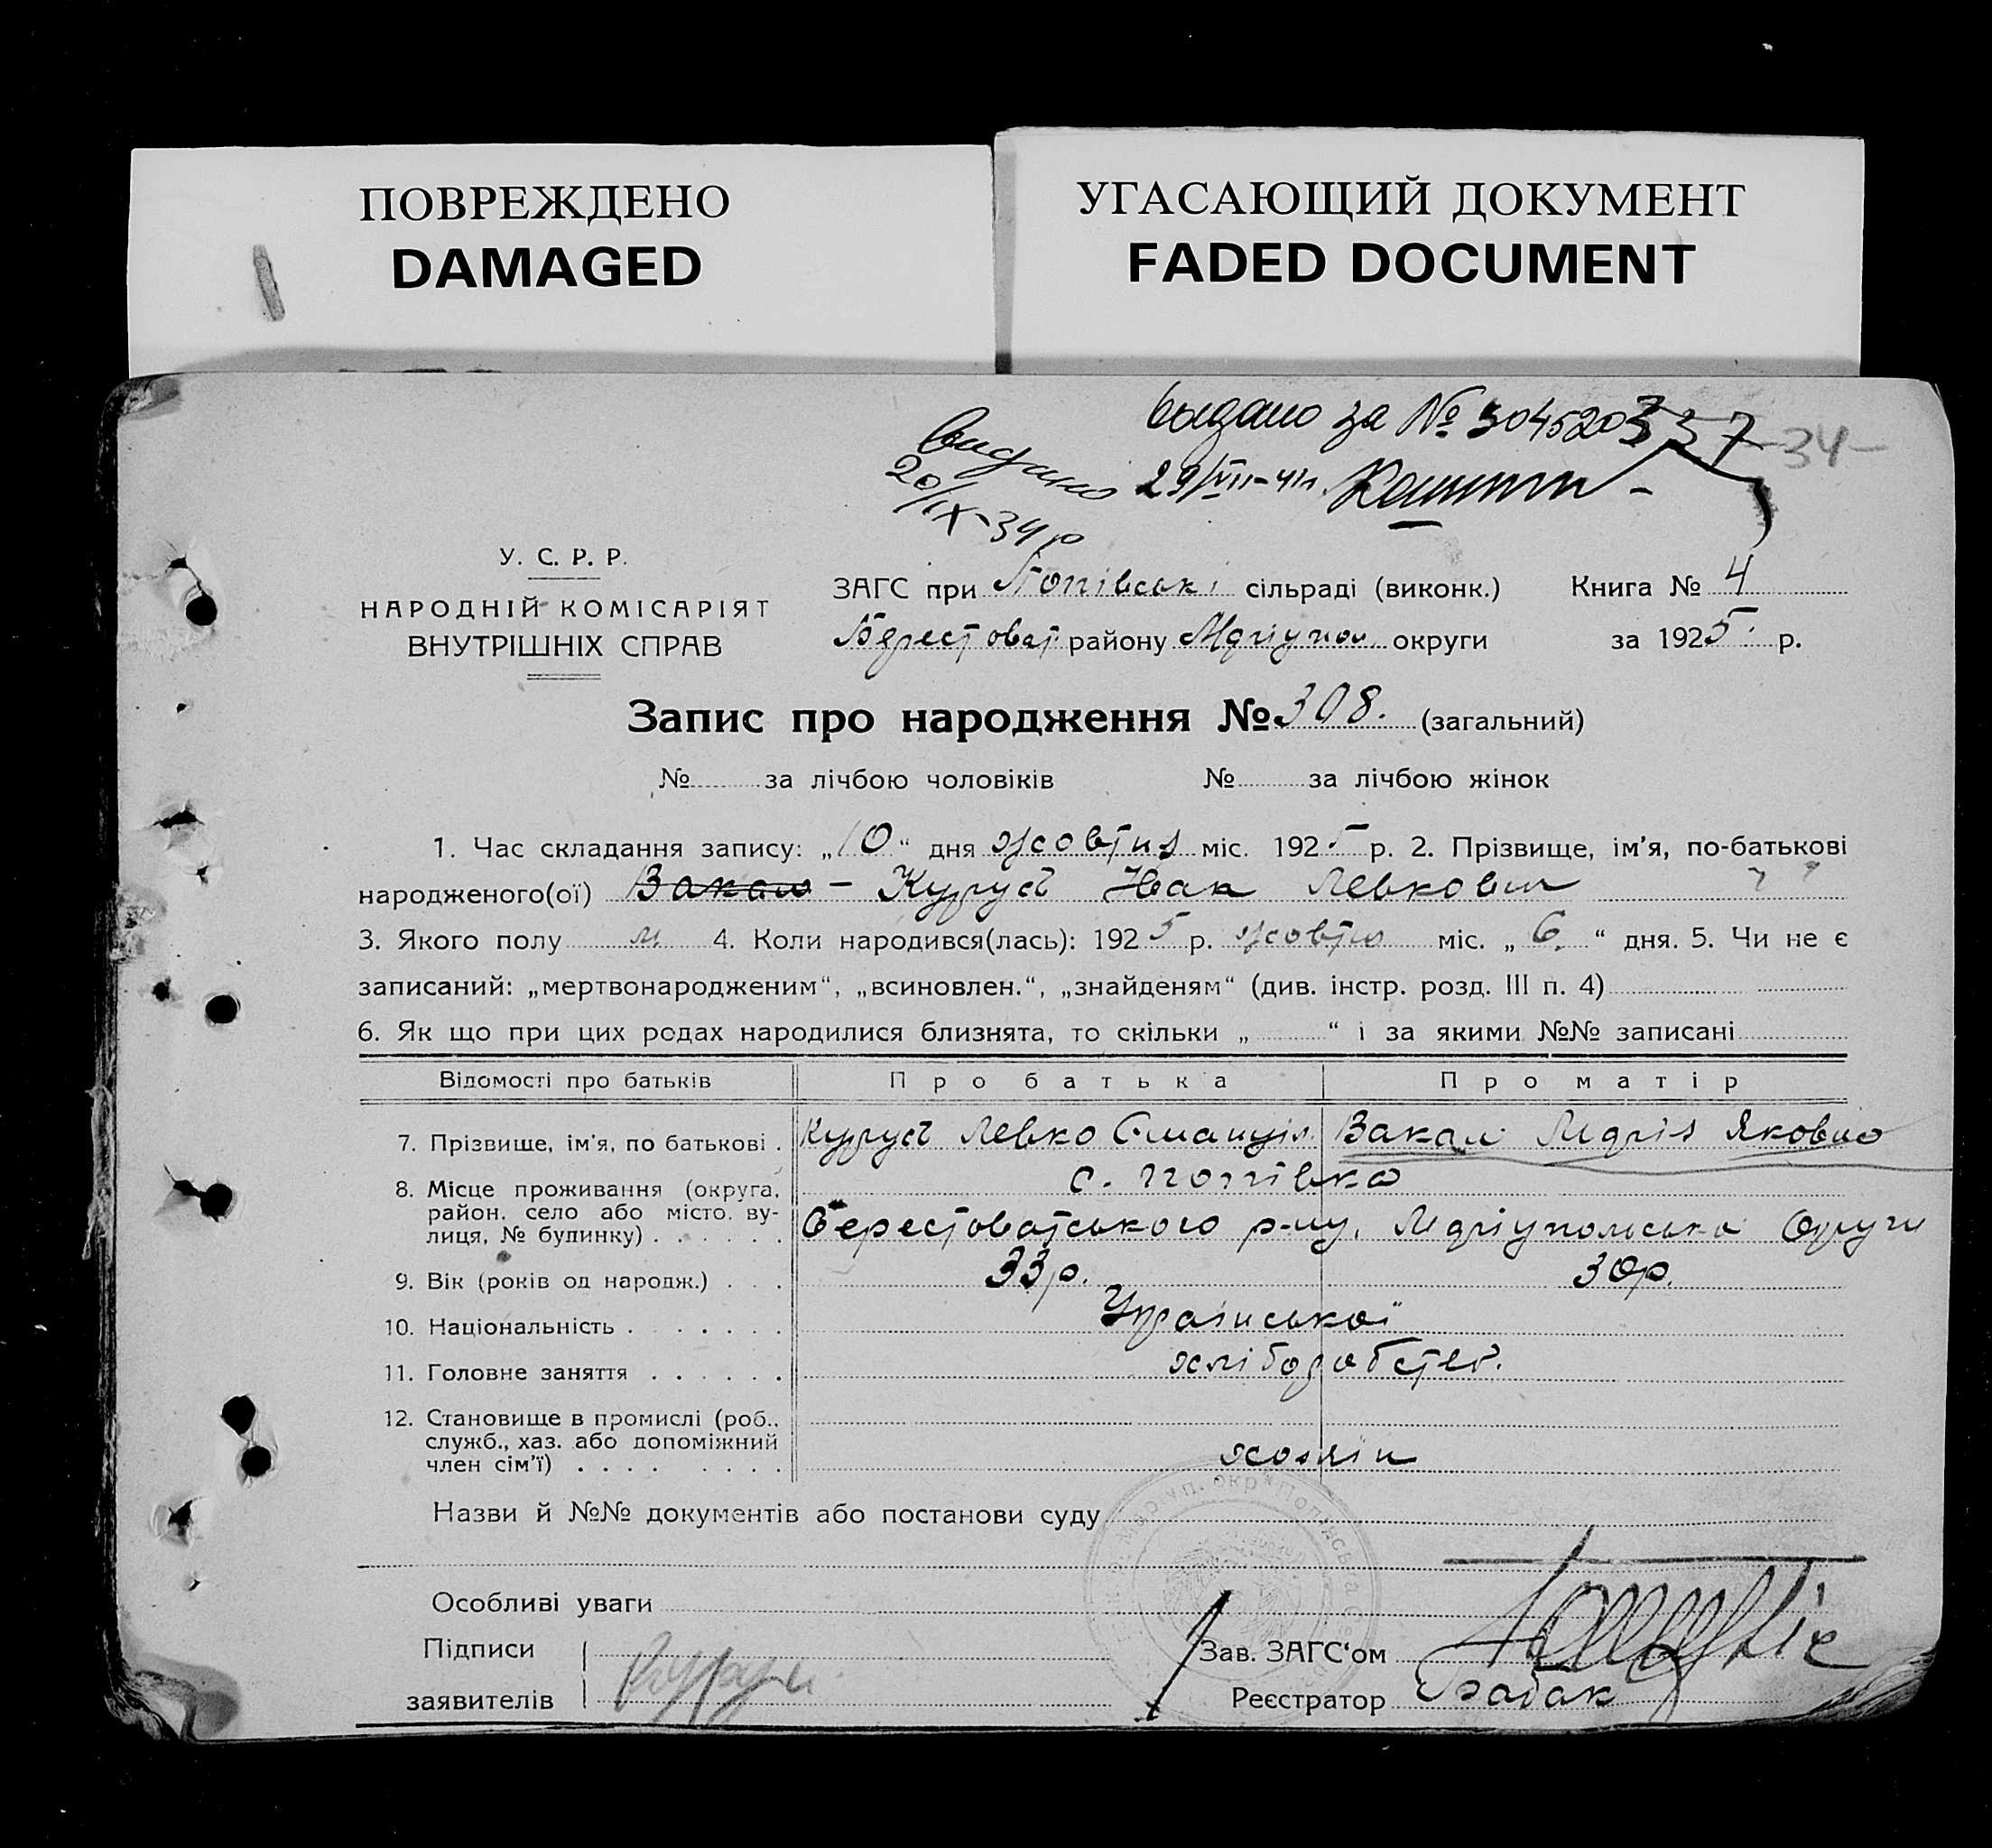 ПОВРЕЖДЕНО
DAMAGED
УГАСАЮЩИЙ ДОКУМЕНТ
FADED DOCUMENT
Выдано за № 3045203 337 -34-
Видано 29/VII-41
20/IX-34 р
У. С. Р. Р.
НАРОДНІЙ КОМІСАРІЯТ
ВНУТРІШНІХ СПРАВ
ЗАГС при Попівські сільраді (виконк.) Книга № 4
Берестоват району Маріупол. округи за 1925 р.
Запис про народження № 308. (загальний)
№ за лічбою чоловіків № за лічбою жінок
1. Час складання запису: „10“ дня жовтня міс. 1925 р. 2. Прізвище, ім'я, по-батькові
народженого(ої) Вакал - Курусь Іван Левкович
3. Якого полу м 4. Коли народився(лась): 1925 р. жовтня міс. „6.“ дня. 5. Чи не є
записаний: „мертвонародженим“, „всиновлен.“, „знайденям“ (див. інстр. розд. III п. 4)
6. Як що при цих родах народилися близнята, то скільки „ “ і за якими №№ записані
Відомості про батьків Про батька Про матір
7. Прізвище, ім'я, по батькові . Курусь Левко Вакал Марія Яковна
8. Місце проживання (округа, район, село або місто, вулиця, № будинку) . . . . . . с. Попівка
Берестоватського р-ну, Маріупольська Округи
9. Вік (років од народж.) . . . 33 р. 30 р.
10. Національність . . . . . . . Української
11. Головне заняття . . . . . . хліборобств.
12. Становище в промислі (роб., служб., хаз. або допоміжний член сім'ї) . . . . . . . . хозяін
Назви й №№ документів або постанови суду
Особливі уваги
Підписи
заявителів
Зав. ЗАГС'ом
Реєстратор